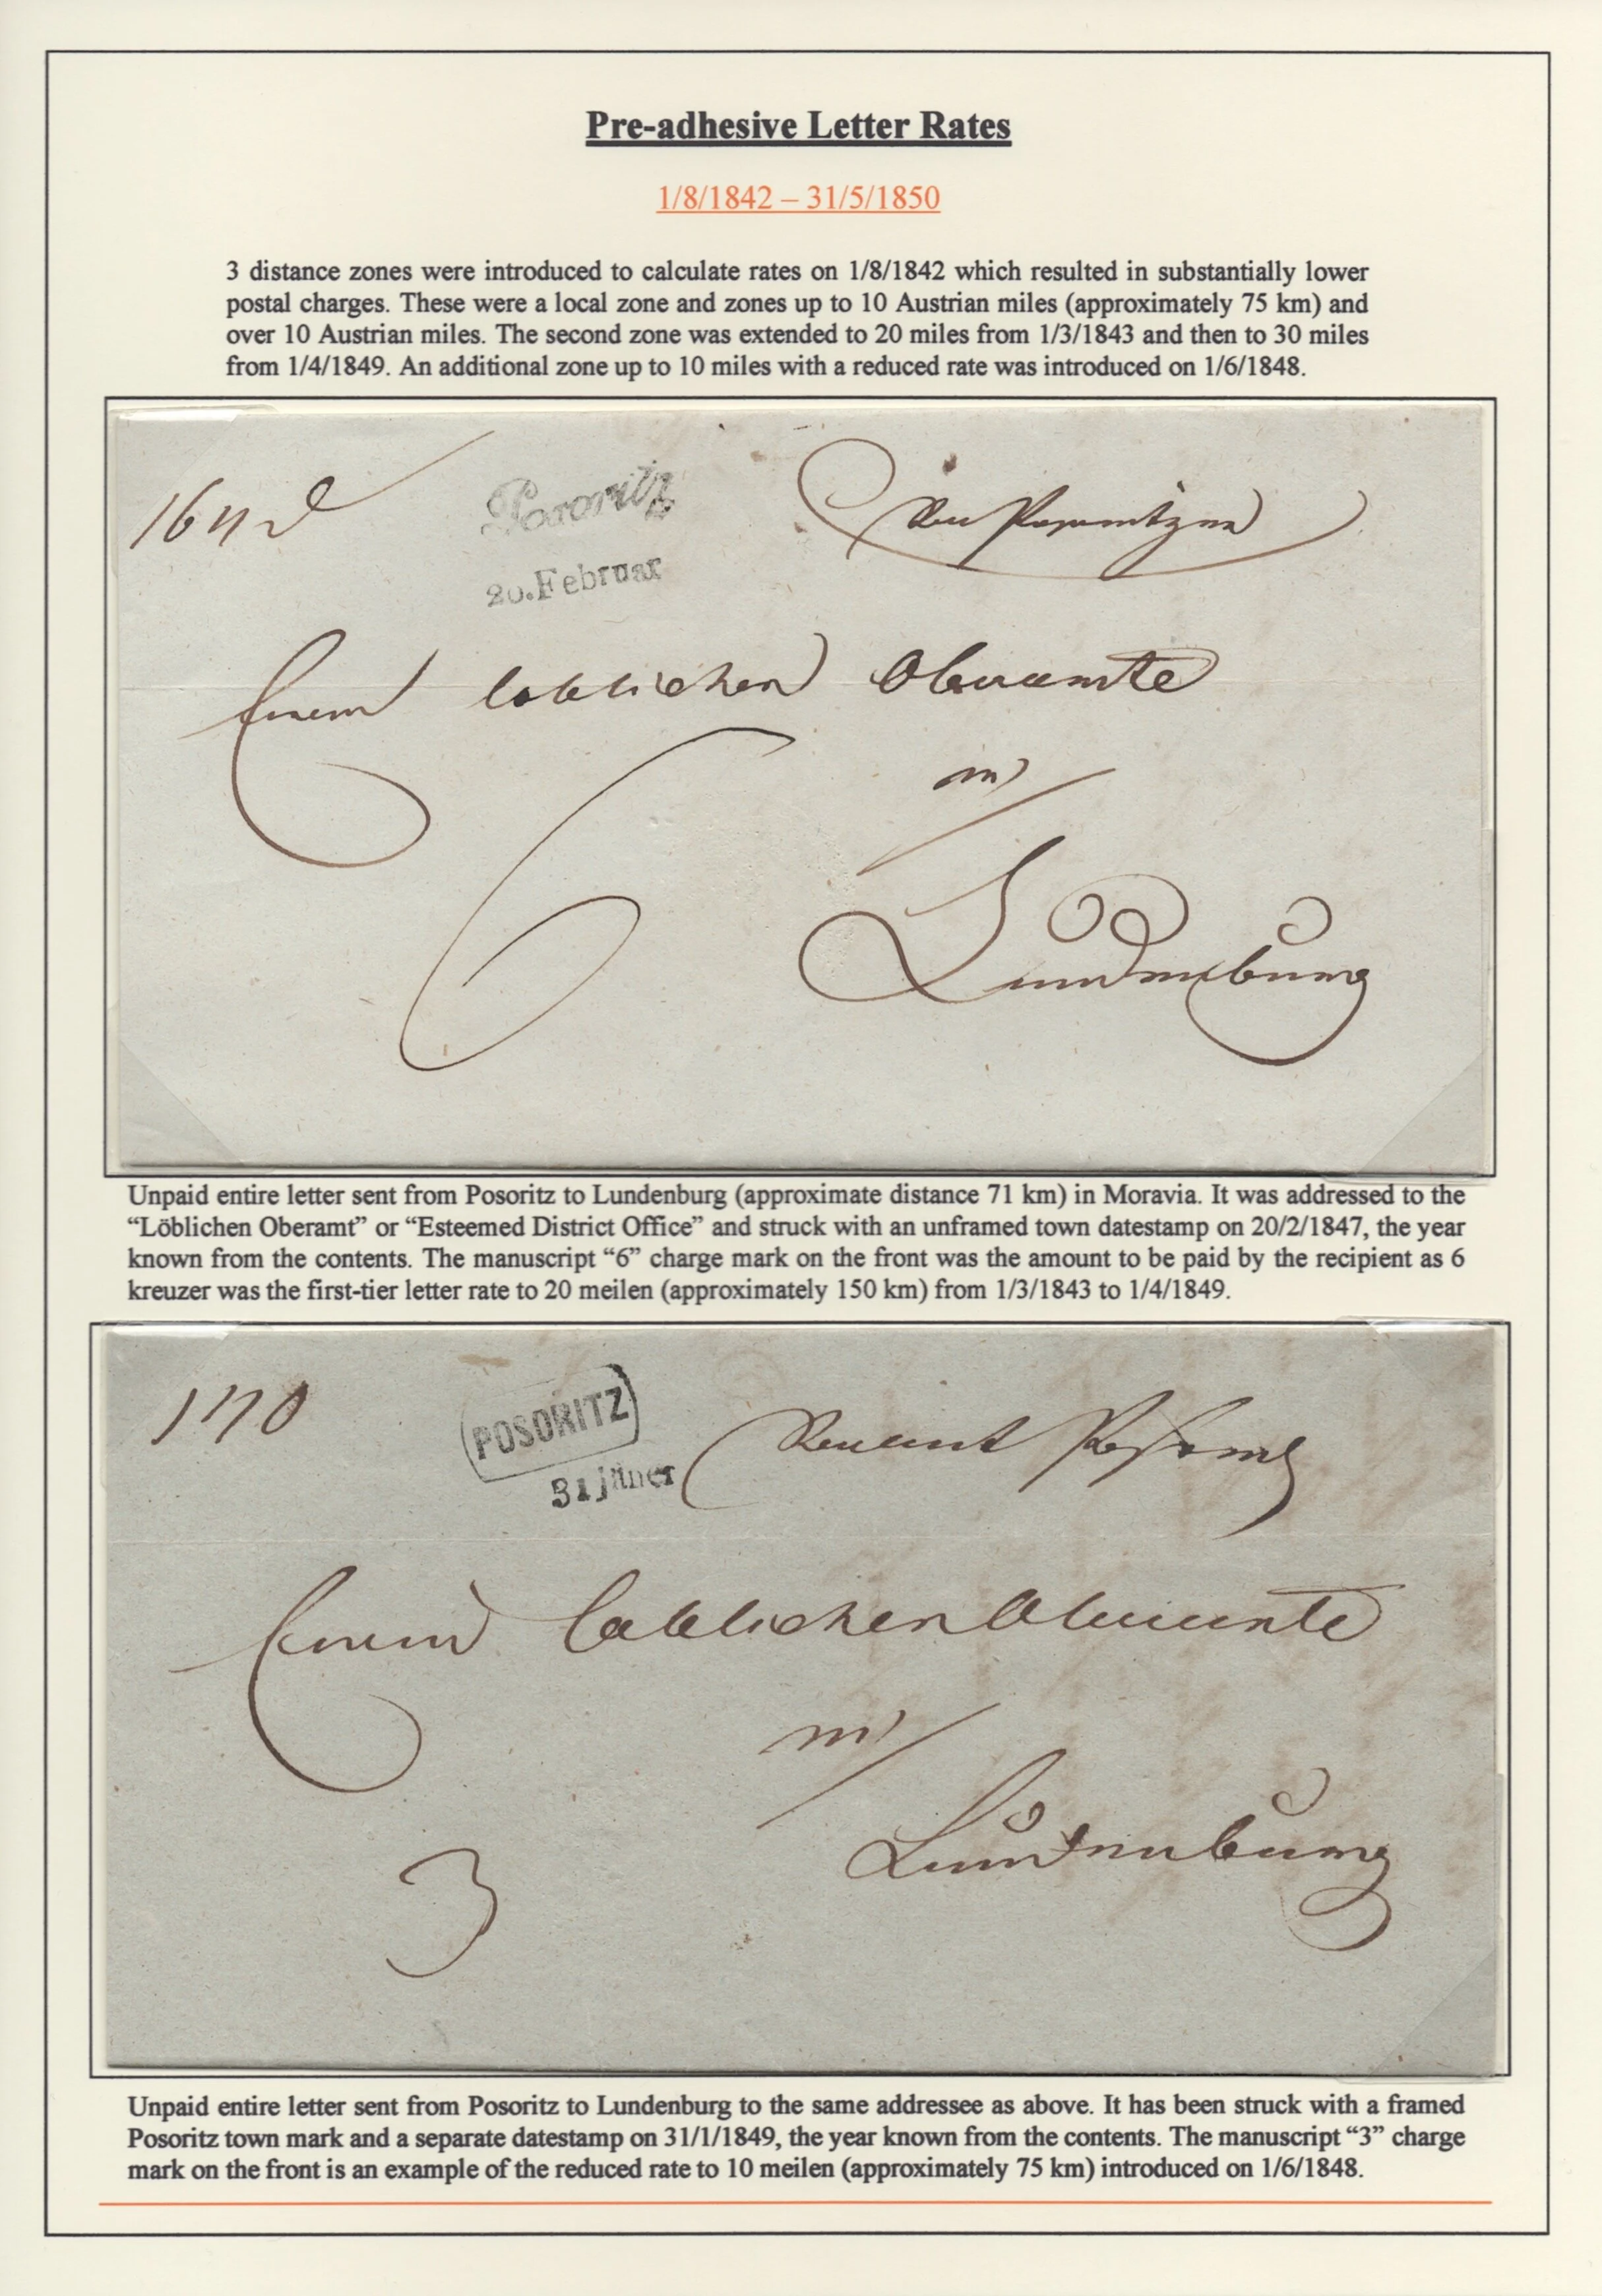 Pre-adhesive Letter Rates
1/8/1842 – 31/5/1850
3 distance zones were introduced to calculate rates on 1/8/1842 which resulted in substantially lower
postal charges. These were a local zone and zones up to 10 Austrian miles (approximately 75 km) and
over 10 Austrian miles. The second zone was extended to 20 miles from 1/3/1843 and then to 30 miles
from 1/4/1849. An additional zone up to 10 miles with a reduced rate was introduced on 1/6/1848.
Posoritz
20.Februar
Einem löblichen Oberamte
in
6
Lundenburg
Unpaid entire letter sent from Posoritz to Lundenburg (approximate distance 71 km) in Moravia. It was addressed to the
“Löblichen Oberamt” or “Esteemed District Office” and struck with an unframed town datestamp on 20/2/1847, the year
known from the contents. The manuscript “6” charge mark on the front was the amount to be paid by the recipient as 6
kreuzer was the first-tier letter rate to 20 meilen (approximately 150 km) from 1/3/1843 to 1/4/1849.
POSORITZ
31 jäner
Einem löblichen Oberamte
in
Lundenburg
3
Unpaid entire letter sent from Posoritz to Lundenburg to the same addressee as above. It has been struck with a framed
Posoritz town mark and a separate datestamp on 31/1/1849, the year known from the contents. The manuscript “3” charge
mark on the front is an example of the reduced rate to 10 meilen (approximately 75 km) introduced on 1/6/1848.